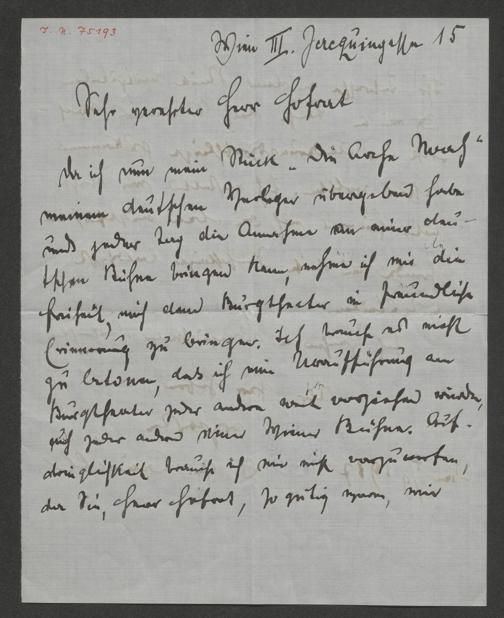 I. N. 75193
Wien III. Jacquingasse 15
Sehr verehrter Herr Hofrat
da ich nun mein Stück „Die Arche Noah“
meinem deutschen Verleger übergeben habe
und jeder Tag die Annahme an einer deu-
tschen Bühne bringen kann, nehme ich mir die
Freiheit, mich dem Burgtheater in freundliche
Erinnerung zu bringen. Ich brauch es nicht
zu betonen, daß ich eine Uraufführung am
Burgtheater jeder andern weit vorziehen würde,
auch jeder andern einer Wiener Bühne. Auf-
dringlichkeit brauche ich mir nicht vorzuwerfen,
da Sie, Herr Hofrat, so gütig waren, mir